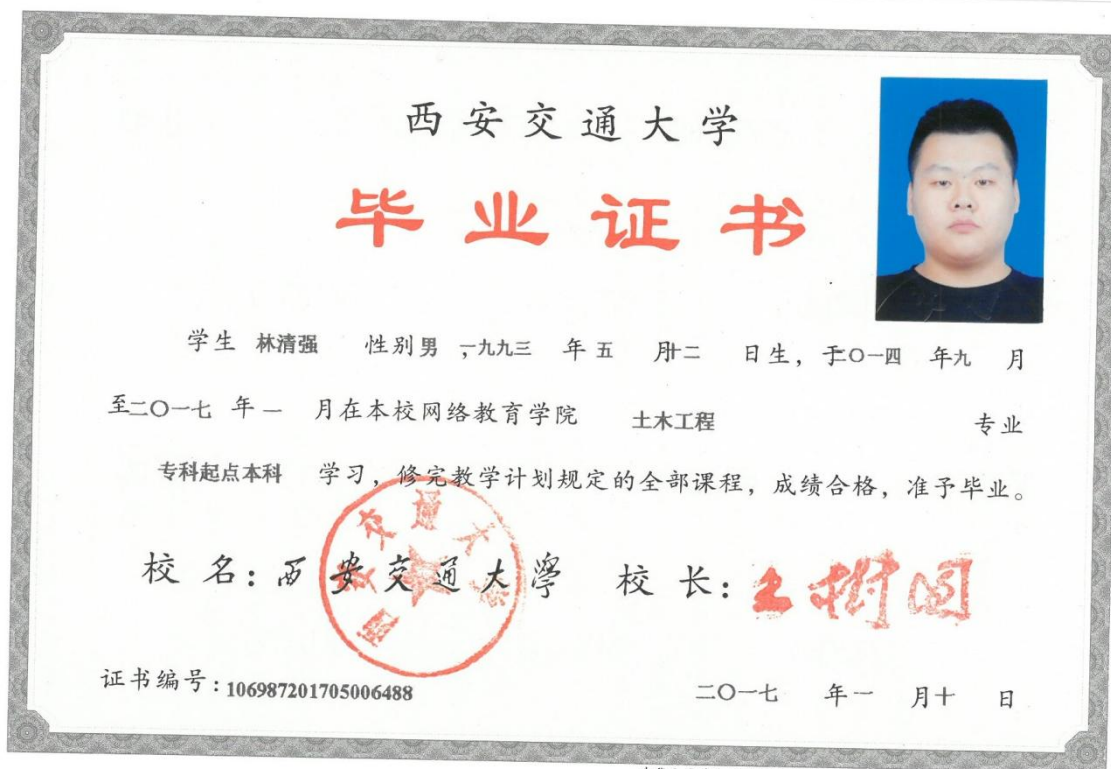 西安交通大学
毕业证书
学生 林清强 性别男，一九九三 年 五 月十二 日生，于二〇一四 年九 月
至二〇一七 年 一 月在本校网络教育学院 土木工程 专业
专科起点本科 学习，修完教学计划规定的全部课程，成绩合格，准予毕业。
校 名：西安交通大学 校 长：王树国
西安交通大学
证书编号：106987201705006488 二〇一七 年一 月十 日